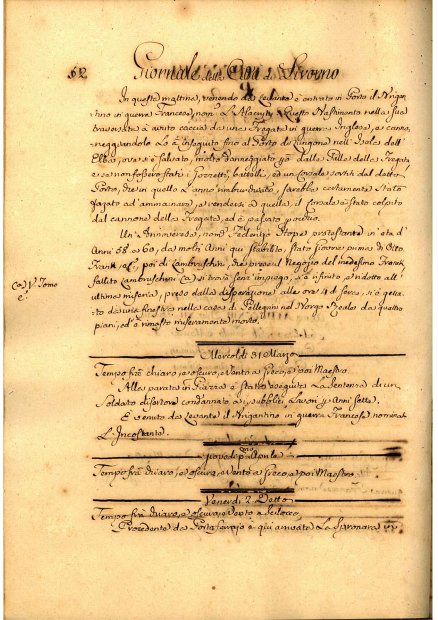 62 Giornale della Città di Livorno
In questa mattina, venendo da Levante è entrato in Porto il Brigan-
tino in guerra Francese, nom. L'Alacrity. Questo Bastimento nella sua
traversata à avuto caccia da una Fregata in guerra Inglese, e canno-
neggiandolo Lo à inseguito fino al Porto di Longone nell'Isola dell'
Elba, ove si è salvato, molto danneggiato dalle Palle della Fregata
e se non fossero stati i Forzetti, battelli, ed un Corale sortiti dal detto
Porto, che in quello L'anno rimburchiato, sarebbe certamente stato
a quella, il Corale è stato colpito
dal cannone della Fregata, ed è
Un Annoverese, nom. Federigo Hope protestante in età d'
Anni 58 a 60, da molti Anni qui stabilito, stato Giovine prima di Otto
Frank (a), poi di Lambruschini, che prese il Negozio del medesimo Frank,
fallito Lambruschini si trovò senz'impiego, e rifinito, e ridotto all'
ultima miseria, preso dalla disperazione alle ore 4 di sera, si è getta-
to da una finestra nella casa di Pellegrin nel Borgo Reale da quattro
piani, ed è rimasto miseramente morto.
(a) V. Tomo
Mercoldì 31 Marzo
Tempo frà chiaro, e oscuro, e vento a Greco, e poi Maestro.
Alla parata in Piazza è stata eseguita La Sentenza di un
Soldato disertore condannato a i pubblici Lavori p. anni sette.
È venuto da Levante il Brigantino in guerra Francese nominat.
L'Incostante.
Giovedì p.mo Aprile
Tempo frà chiaro, e oscuro, e vento a Greco, e poi Maestro.
Venerdì 2 Detto
Tempo frà chiaro, e oscuro, e vento a Scilocco.
Procedente da Portoferrajo è qui arrivata La Speronara